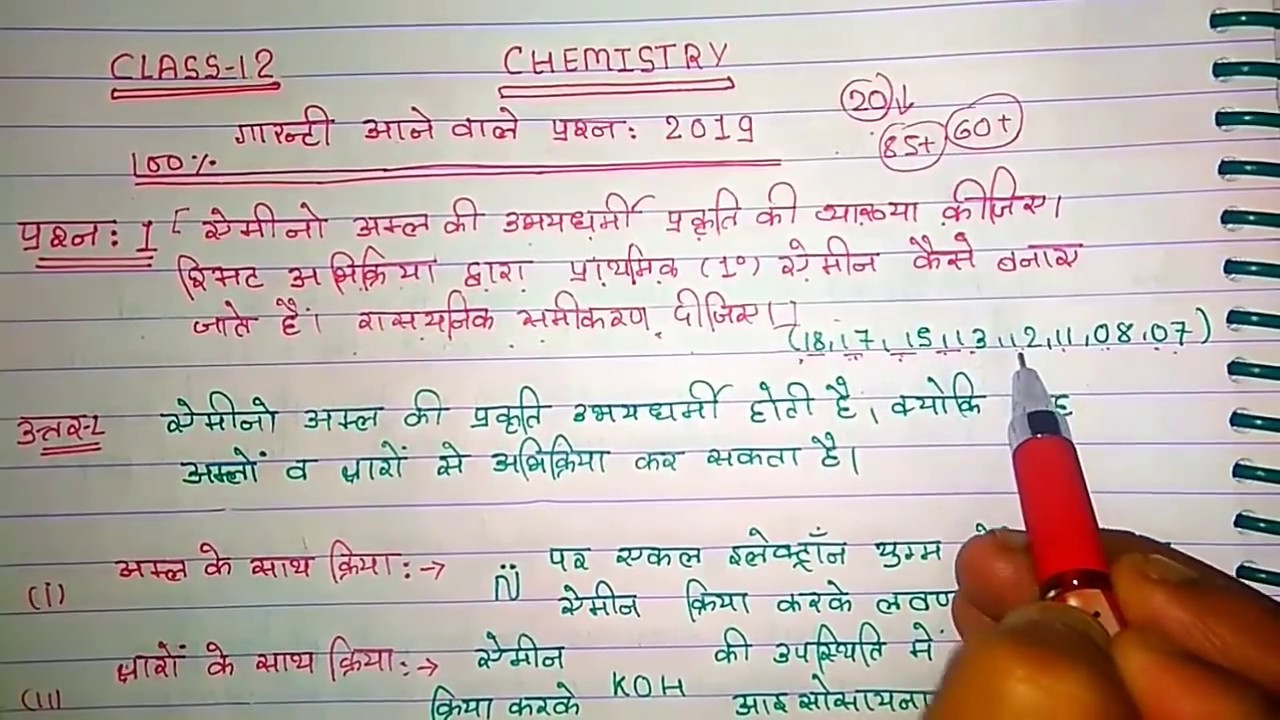 CLASS-12 CHEMISTRY
20↓
गारन्टी आने वाले प्रश्न: 2019 85+ 60+
100%
प्रश्न: 1 [ ऐमीनो अम्ल की उभयधर्मी प्रकृति की व्याख्या कीजिए।
श्मिट अभिक्रिया द्वारा प्राथमिक (1°) ऐमीन कैसे बनाए
जाते हैं। रासयनिक समीकरण दीजिए।]
(18,17, 15,13,12,11,08,07)
उत्तर-1 ऐमीनो अम्ल की प्रकृति उभयधर्मी होती है, क्योकि
अम्लों व क्षारों से अभिक्रिया कर सकता है।
(i) अम्ल के साथ क्रिया:→ N̈ पर एकल इलेक्ट्रॉन युग्म
ऐमीन क्रिया करके लवण
(ii) क्षारों के साथ क्रिया:→ ऐमीन की उपस्थिति में
क्रिया करके KOH